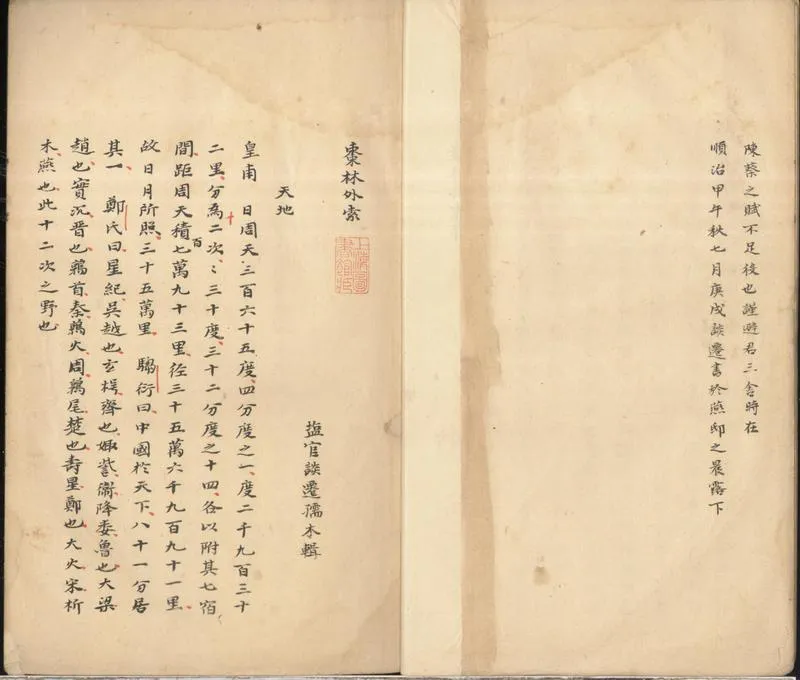 陳蔡之賦不足役也謹避君三舍時在
順治甲午秋七月庚戌談遷書於燕邸之晨露下
棗林外索
上海圖書館藏
塩官談遷孺木輯
天地
皇甫 日周天三百六十五度四分度之一度二千九百三十
二里分為十二次〻三十度三十二分度之十四各以附其七宿
間距周天積七百萬九十三里徑三十五萬六千九百九十一里
故日月所照三十五萬里 騶衍曰中國於天下八十一分居
其一 鄭氏曰星紀吳越也玄枵齊也娵訾衛降婁魯也大梁
趙也實沉晉也鶉首秦鶉火周鶉尾楚也壽星鄭也大火宋析
木燕也此十二次之野也